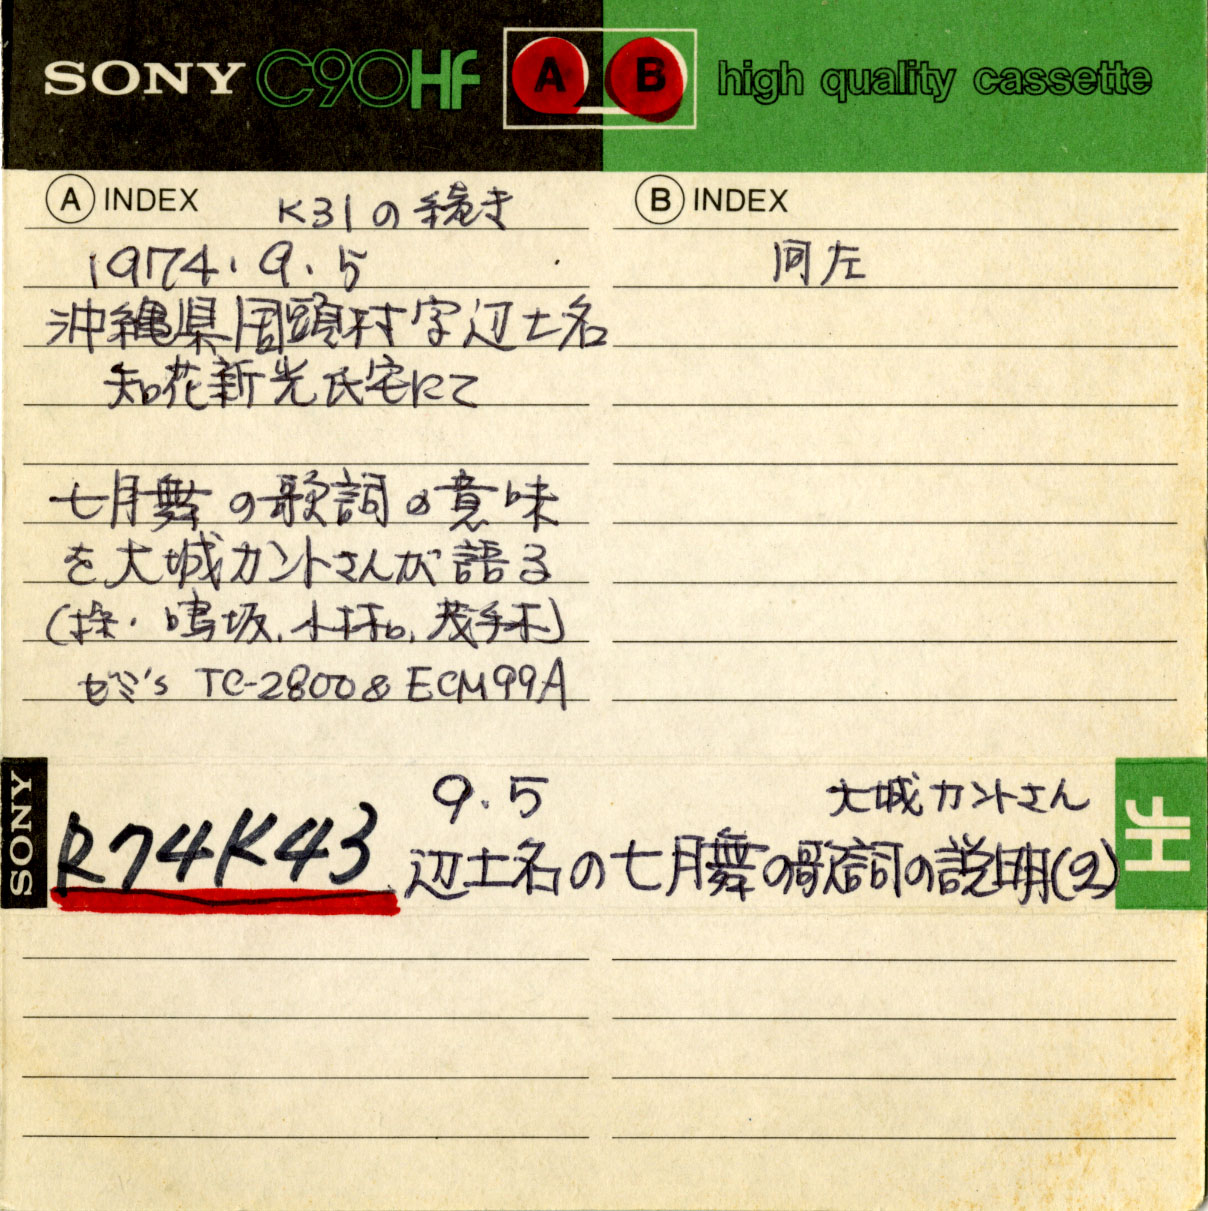 SONY C90HF A B high quality cassette
A INDEX K31の続き
1974.9.5
沖縄県国頭村字辺土名
知花新光氏宅にて
七月舞の歌詞の意味
を大城カントさんが語る
(採・鳴坂.小林和.茂手木)
ゼミ's TC-2800 & ECM99A
B INDEX
同左
SONY
R74K43
9.5 大城カントさん
辺土名の七月舞の歌詞の説明(2)
HF